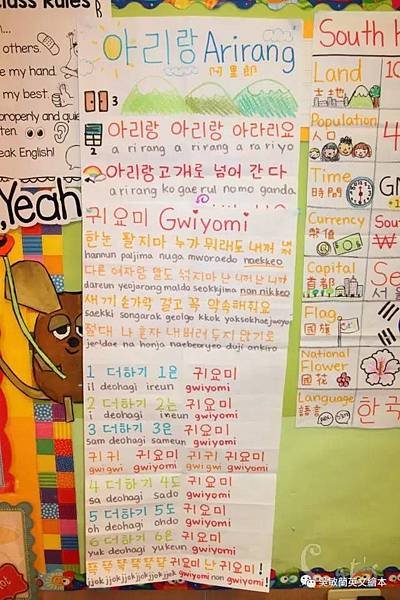 Class Rules
others.
e my hand.
my best.
properly and quie
ten
eak English!
Yeah
아리랑 Arirang
阿里郎
3
2
아리랑 아리랑 아라리요
a ri rang a ri rang a ra ri yo
아리랑고개로 넘어 간다
a ri rang ko gae rul no mo ganda
귀요미 Gwiyomi
한눈 팔지마 누가 뭐래도 내꺼
hannun paljima nuga mworaedo naekkeo
다른 여자랑 말도 섞지마 난 니꺼
dareun yeojarang maldo seokkjima nan nikkeo
새끼 손가락 걸고 꼭 약속해줘요
saekki songarak geolgo kkok yaksokhaejwoyo
절대 나 혼자 내버려두지 않기로
jeoldae na honja naebeoryeo duji ankiro
1 더하기 1은 귀요미
il deohagi ireun gwiyomi
2 더하기 2는 귀요미
i deohagi ineun gwiyomi
3 더하기 3은 귀요미
sam deohagi sameun gwiyomi
귀귀 귀요미 귀귀 귀요미
gwi gwi gwiyomi gwi gwi gwiyomi
4 더하기 4도 귀요미
sa deohagi sado gwiyomi
5 더하기 5도 귀요미
oh deohagi ohdo gwiyomi
6 더하기 6은 귀요미
yuk deohagi yukeun gwiyomi
쪽쪽쪽쪽쪽쪽 귀요미 난 귀요미!
jjokjjokjjokjjokjjokjjok gwiyomi non gwiyomi!
South K
Land
土地
10
Population
人口
4
Time
時間
GM
Currency
幣值
South
₩
Capital
首都
Se
서울
Flag
國旗
National
Flower
國花
Language
語言
한국
吳敏蘭英文繪本